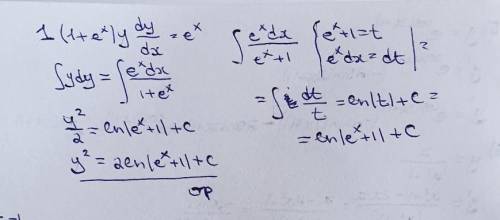 1 (1+e^x) y dy/dx = e^x
∫ydy = ∫ e^x dx / 1+e^x
y²/2 = ln|e^x+1|+C
y² = 2ln|e^x+1|+C
∫ e^x dx / e^x+1 { e^x+1=t
e^x dx = dt | =
= ∫ dt/t = ln|t|+C =
= ln|e^x+1|+C